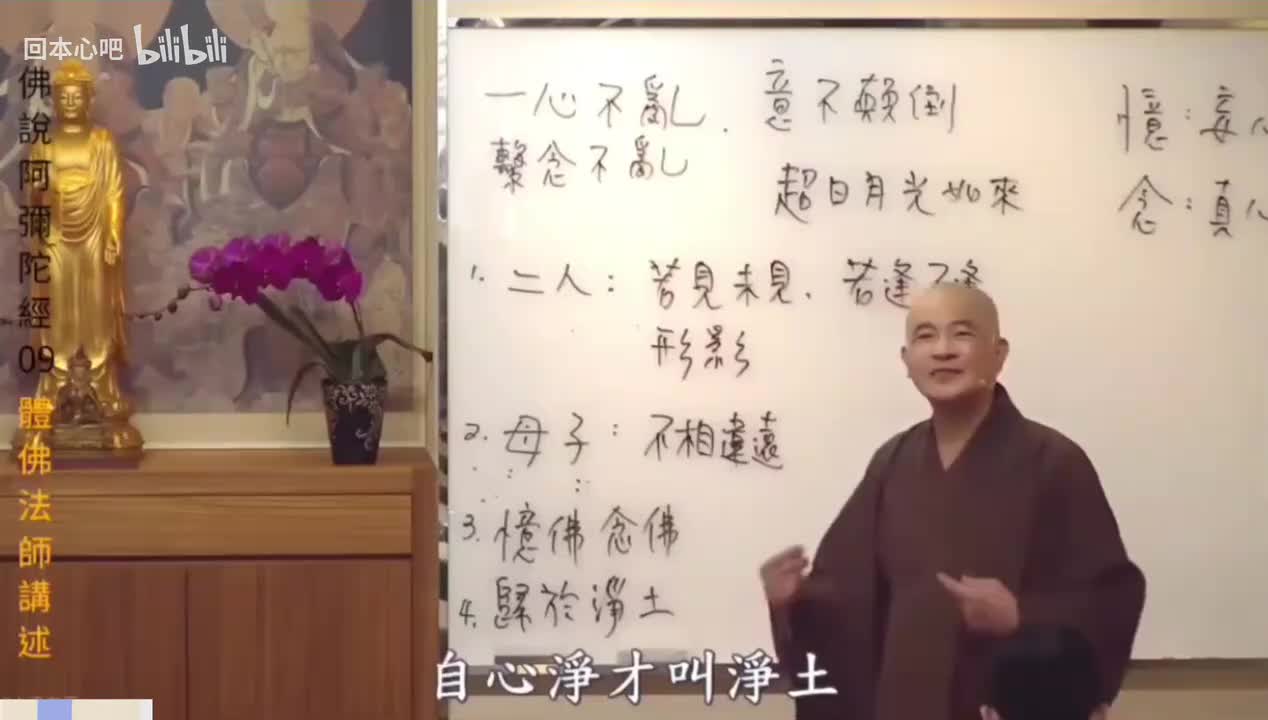 回本心吧 bilibili
佛說阿彌陀經09 體佛法師講述
一心不亂、意不顛倒
繫念不亂
超日月光如來
憶：妄
念：真
1. 二人：若見未見、若逢不逢
形影
2. 母子：不相違遠
3. 憶佛念佛
4. 歸於淨土
自心淨才叫淨土